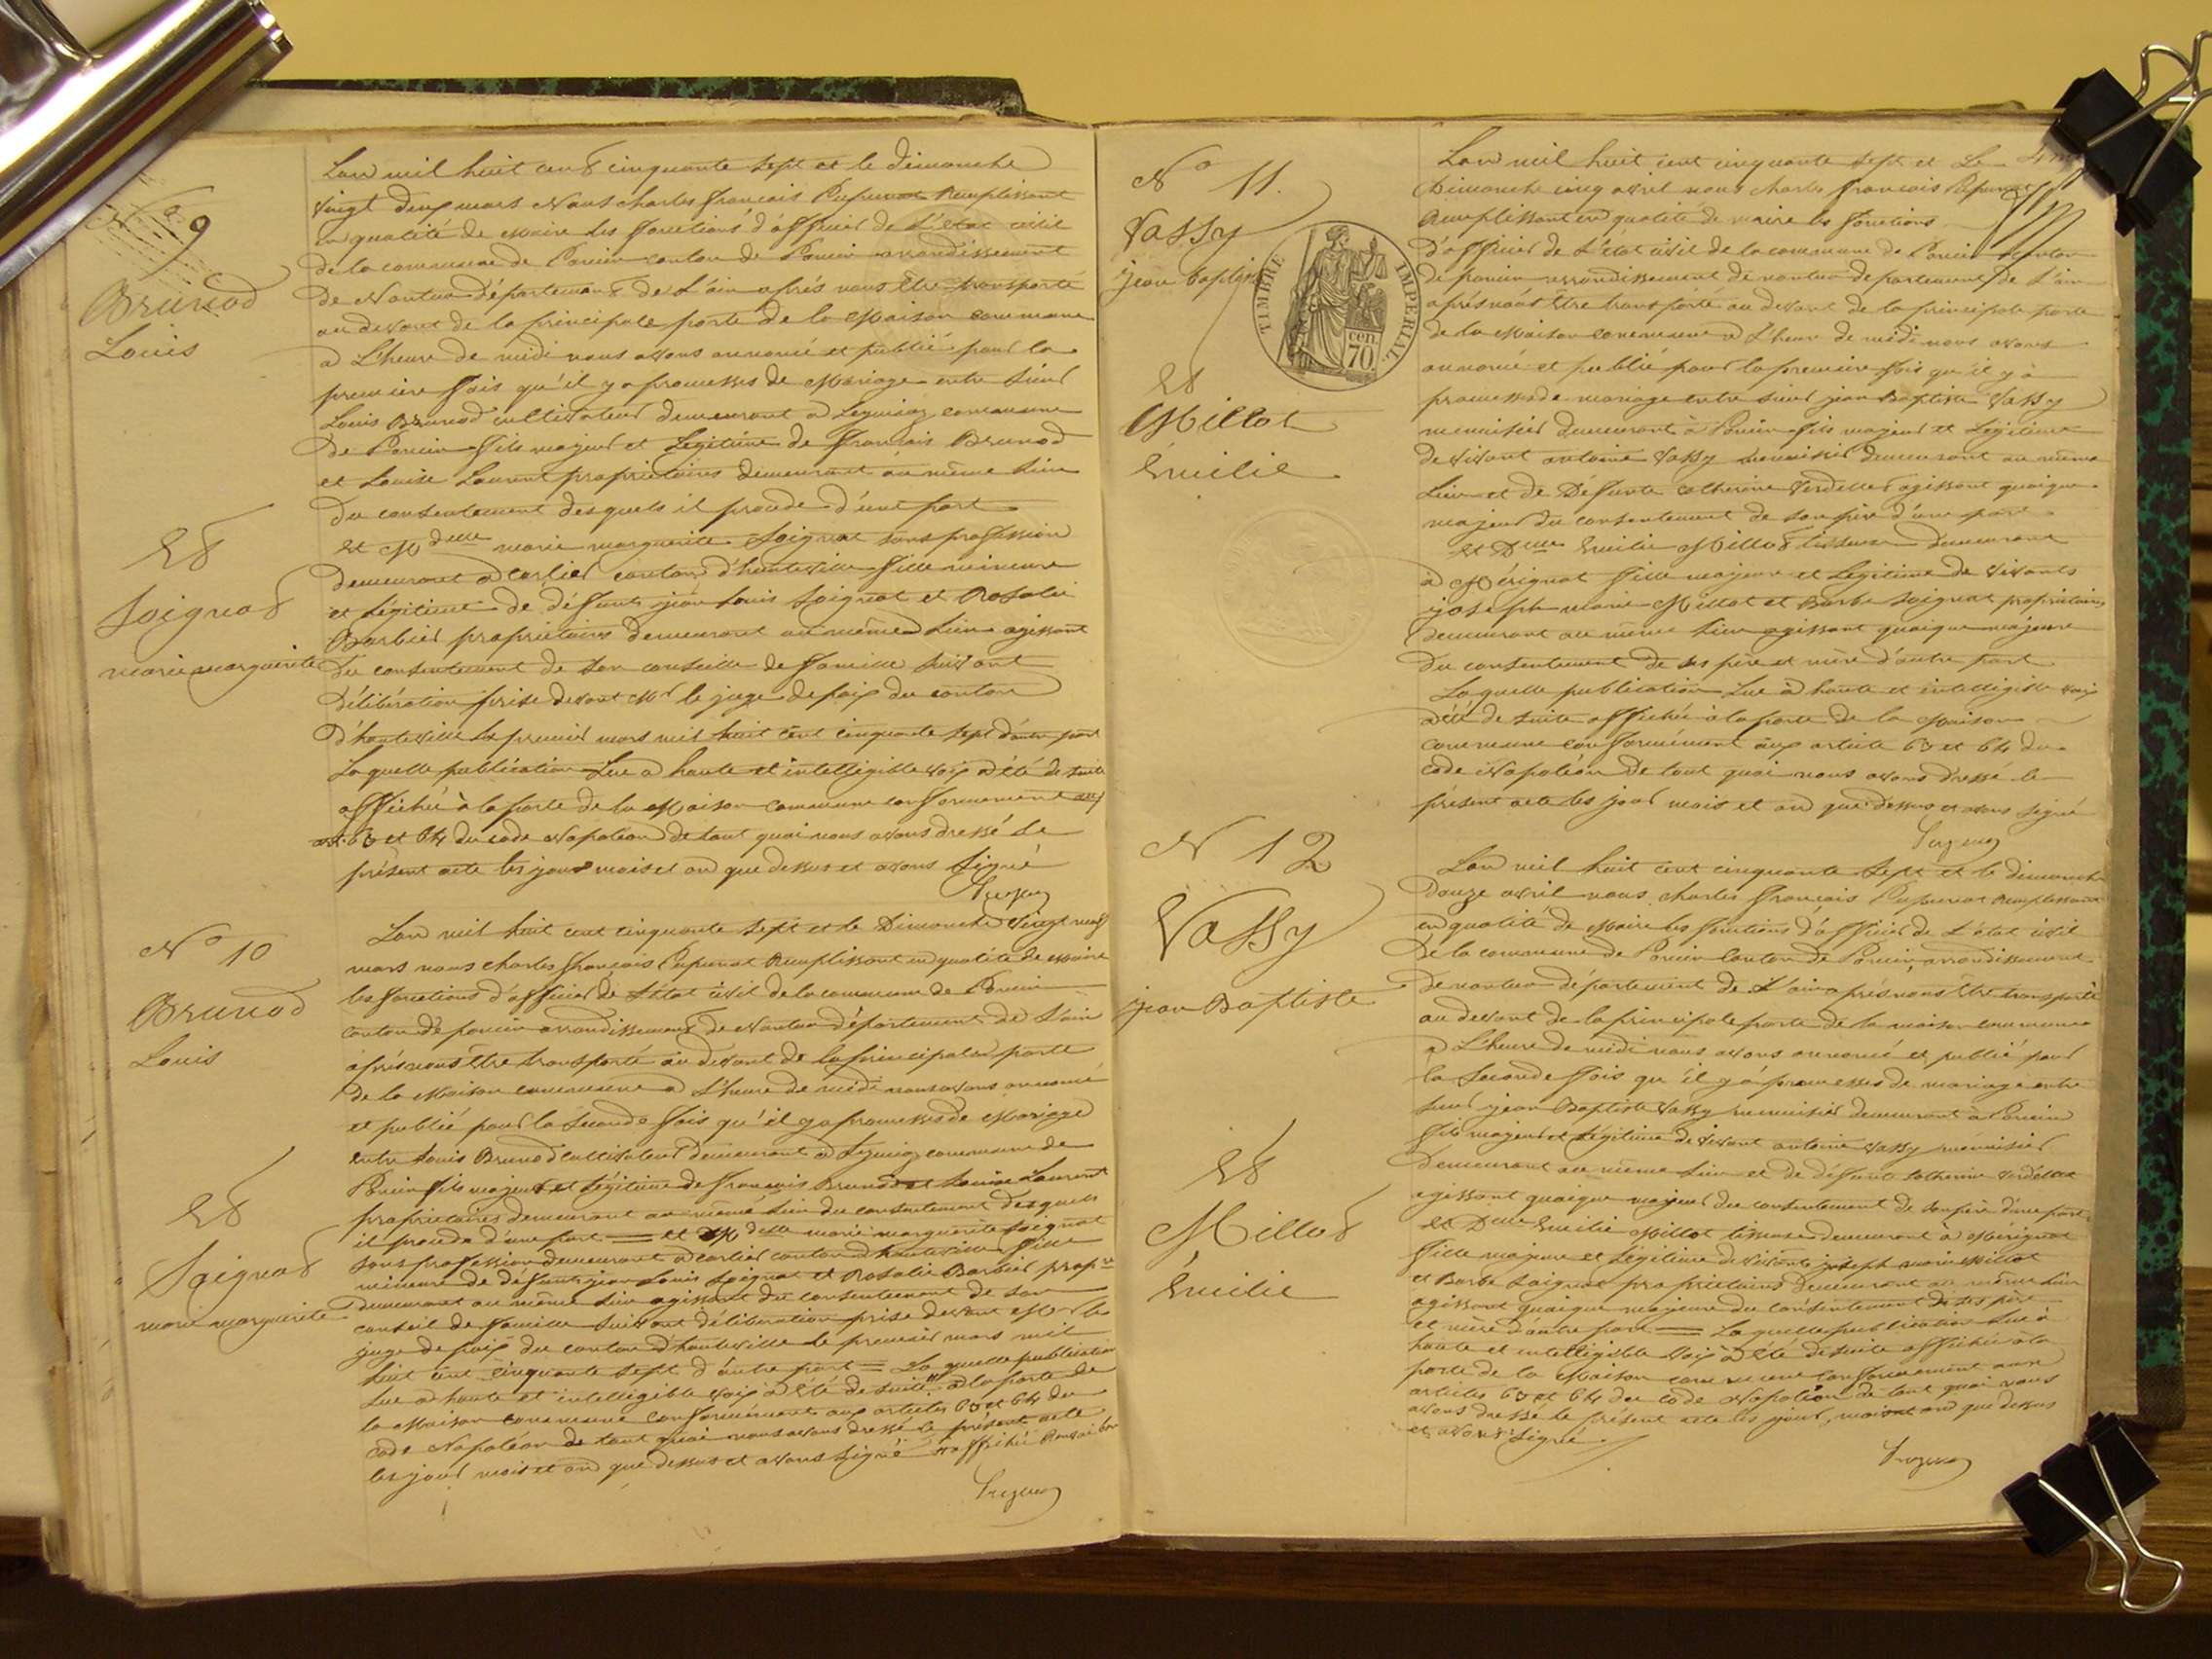 No 9
Brunod
Louis
Et
Soignat
marie marguerite
Lan mil huit cent cinquante sept et le dimanche
vingt deux mars Nous charles françois Pupunat Remplissant
en qualité de Maire les fonctions d'officier de L'état civil
de la commune de Poncin canton de Poncin arrondissement
de Nantua département de L'ain après nous être transporté
au devant de la principale porte de la Maison commune
a L'heure de midi nous avons annoncé et publié pour la
première fois qu'il y a promesses de Mariage entre sieur
Louis Brunod cultivateur demeurant a Leymiaz commune
de Poncin fils majeur et Légitime de français Brunod
et Louise Laurent propriétaires demeurant au même lieu
du consentement desquels il procede d'une part
et Mdelle marie marguerite Soignat sans profession
demeurant a Corlier canton d'hauteville fille mineure
et Légitime de défunts jean Louis Soignat et Rosalie
Barbier propriétaires demeurant au même Lieu agissant
du consentement de son conseille de famille suivant
Délibération prise devant Mr le juge de paix du canton
d'hauteville le premier mars mil huit cent cinquante sept d'autre part
Laquelle publication Lue a haute et intelligible voix a été de suite
affichée à la porte de la Maison commune conformement aux
art. 63 et 64 du code Napoléon de tout quoi nous avons dressé Le
présent acte les jour mois et an que dessus et avons Signé
No 10
Brunod
Louis
Et
Soignat
marie marguerite
Lan mil huit cent cinquante sept et le Dimanche vingt neuf
mars nous charles françois Pupunat Remplissant en qualité de Maire
les fonctions d'officier de L'état civil de la commune de Poncin
canton de poncin arrondissement de Nantua département de L'ain
après nous être transporté au devant de la principale porte
de la Maison commune a L'heure de midi nous avons annoncé
et publié pour la seconde fois qu'il y a promesses de Mariage
entre Louis Brunod cultivateur demeurant a Leymiaz commune de
Poncin fils majeur et Légitime de françois Brunod et Louise Laurent
propriétaires demeurant au même lieu du consentement desquels
il procede d'une part = et Mdelle marie marguerite Soignat
sans profession demeurant a Corlier canton d'hauteville fille
mineure de défunts jean Louis Soignat et Rosalie Barbier propres
demeurant au même lieu agissant du consentement de son
conseil de famille suivant délibération prise devant Mr le
juge de paix du canton d'hauteville le premier mars mil
huit cent cinquante sept d'autre part = Laquelle publication
Lue a haute et intelligible voix a été de suite a la porte de
la Maison commune conformément aux articles 63 et 64 du
code Napoléon de tout quoi nous avons dressé le présent acte
les jour mois et an que dessus et avons signé affichée
No 11.
Vassy
jean baptiste
Et
Millot
Emilie
TIMBRE IMPERIAL
70 cen.
Lan mil huit cent cinquante sept et Le
Dimanche cinq avril nous charles françois Pupunat
Remplissant en qualité de maire les fonctions
d'officier de L'état civil de la commune de Poncin canton
de poncin arrondissement de nantua departement de L'ain
après nous être transporté au devant de la principale porte
de la Maison commune a L'heure de midi nous avons
annoncé et publié pour la première fois qu'il y a
promesses de mariage entre sieur jean Baptiste Vassy
menuisier demeurant à Poncin fils majeur et Légitime
de vivant antoine Vassy menuisier demeurant au même
Lieu et de Défunte catherine agissant quoique
majeur du consentement de son père d'une part
et Delle Emilie Millot tisseuse demeurant
a Mérignat fille majeure et Légitime de vivants
joseph marie Millot et Barbe Soignat propriétaires
demeurant au même lieu agissant quoique majeure
du consentement de ses père et mère d'autre part
Laquelle publication Lue a haute et intelligible voix
a été de suite affichée à la porte de la Maison
commune conformément aux article 63 et 64 du
code Napoléon De tout quoi nous avons dressé le
présent acte les jour mois et an que dessus et avons signé
N 12
Vassy
jean Baptiste
Et
Millot
Emilie
Lan mil huit cent cinquante sept et le dimanche
Douze avril nous charles françois Pupunat Remplissant
en qualité de Maire les fonctions d'officier de L'état civil
De la commune de Poncin Canton de Poncin arrondissement
de nantua département de L'ain après nous être transporté
au devant de la principale porte de la maison commune
a L'heure de midi nous avons annoncé et publié pour
la seconde fois qu'il y a promesses de mariage entre
sieur jean Baptiste Vassy menuisier demeurant à Poncin
fils majeur et Légitime de vivant antoine Vassy menuisier
demeurant au même lieu et de défunte catherine
agissant quoique majeur du consentement de son père d'une part
et Delle Emilie Millot tisseuse demeurant à Mérignat
fille majeure et Légitime de vivants joseph marie Millot
et Barbe Soignat propriétaires demeurant au même lieu
agissant quoique majeure du consentement de ses père
et mère d'autre part = Laquelle publication Lue à
haute et intelligible voix a été de suite affichée à la
porte de la Maison commune conformément aux
articles 63 et 64 du code Napoléon de tout quoi nous
avons dressé le présent acte les jour, mois et an que dessus
et avons signé.